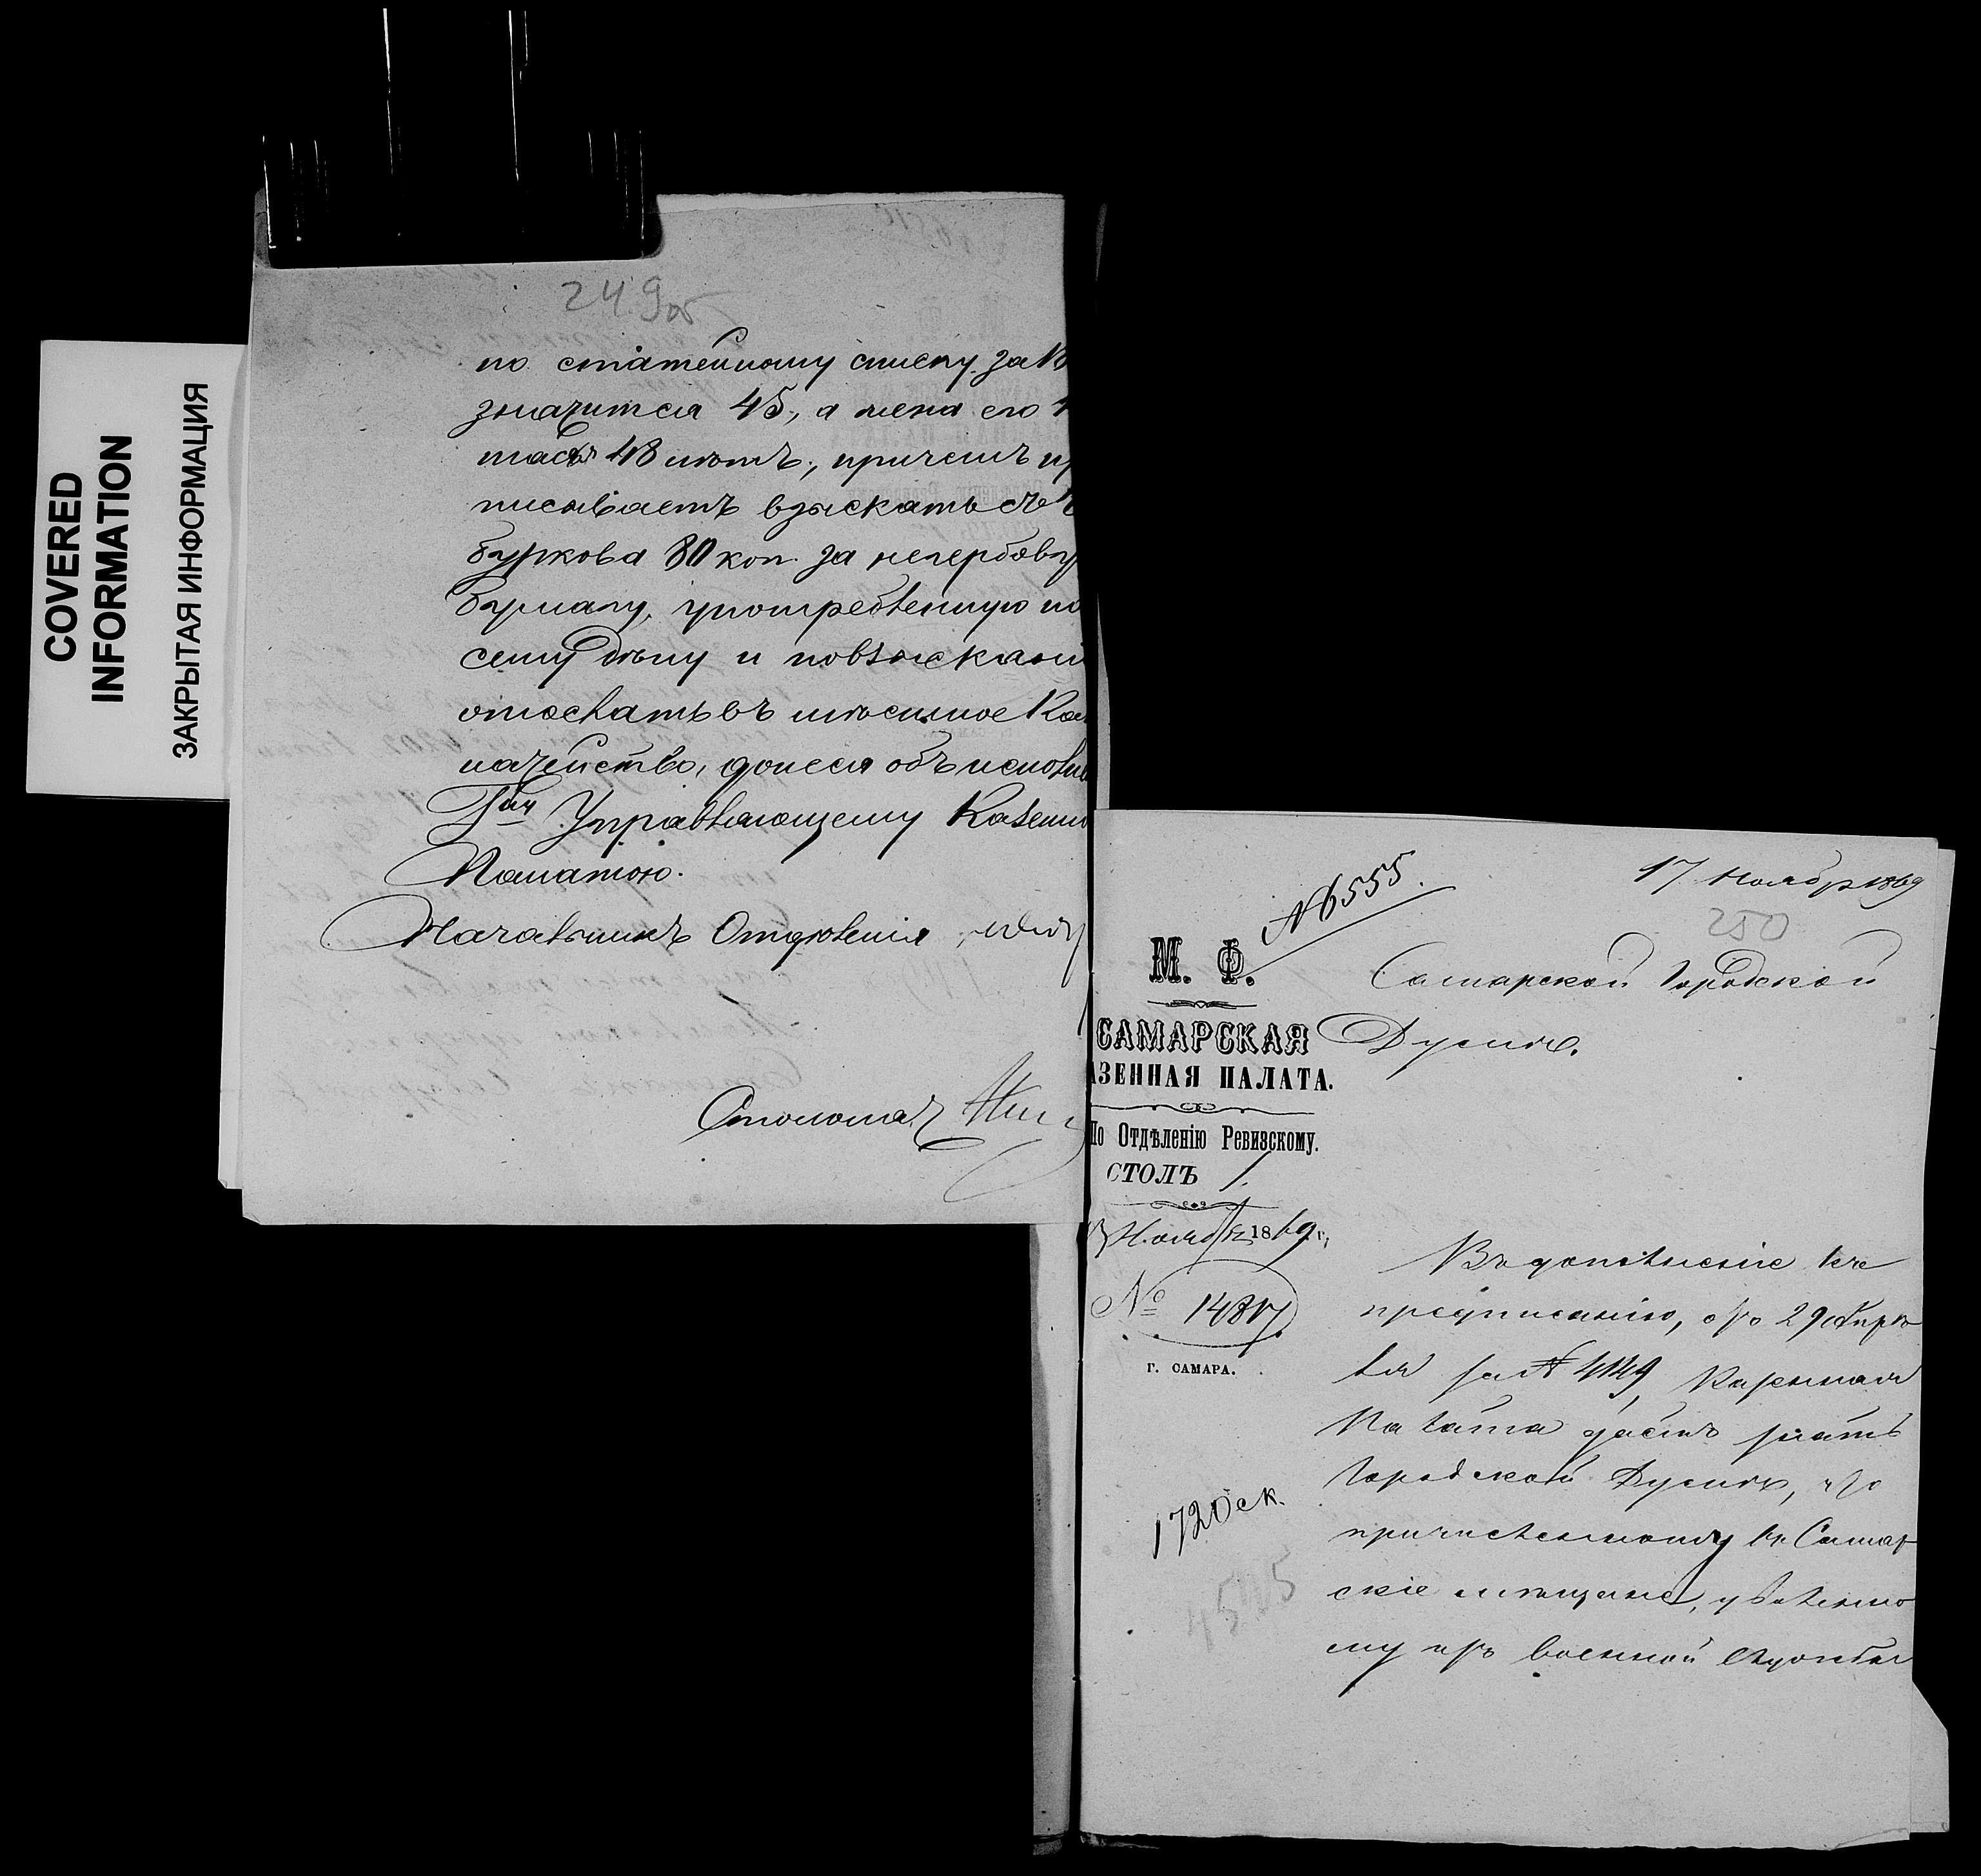 COVERED
INFORMATION
ЗАКРЫТАЯ ИНФОРМАЦИЯ
249об
по статейному списку за
значится 45, а жена его
48 лѣтъ, причемъ
писываетъ взыскать съ
буркова 80 коп. за негербовую
бумагу, употребленную по
сему дѣлу и по взысканіи
отослать въ мѣстное Каз
начейство, донеся объ исполне
Гну Управляющему Казенно
Палатою.
Начальникъ Отдѣленія
Столонача
17 Ноябр 1869
№ 6555.
250
М. Ф.
САМАРСКАЯ
АЗЕННАЯ ПАЛАТА.
По Отдѣленію Ревизскому.
СТОЛЪ 1.
Ноябр 1869 г.
№ 14817
г. САМАРА.
1720 ск.
4545
Самарской Городской
Думѣ.
Въ дополненіе къ
предписанію, отъ 29 Апрѣ
ля за № 4149, Казенная
Палата даетъ знать
Городской Думѣ, что
причисленному въ Самар
скіе мѣщане, уволенно
му изъ военной службы